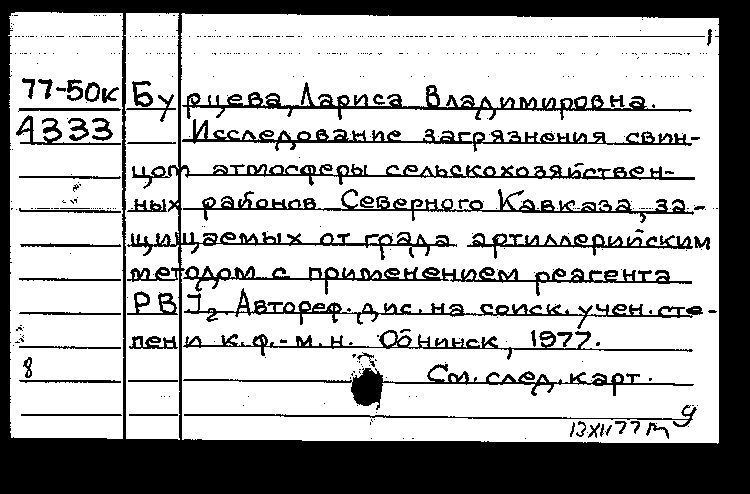 1
77-50к Бурцева, Лариса Владимировна.
4333 Исследование загрязнения свин-
цом атмосферы сельскохозяйствен-
ных районов Северного Кавказа, за-
щищаемых от града артиллерийским
методом с применением реагента
PBJ₂. Автореф. дис. на соиск. учен. сте-
пени к.ф.-м.н. Обнинск, 1977.
8 См. след. карт.
13XII77